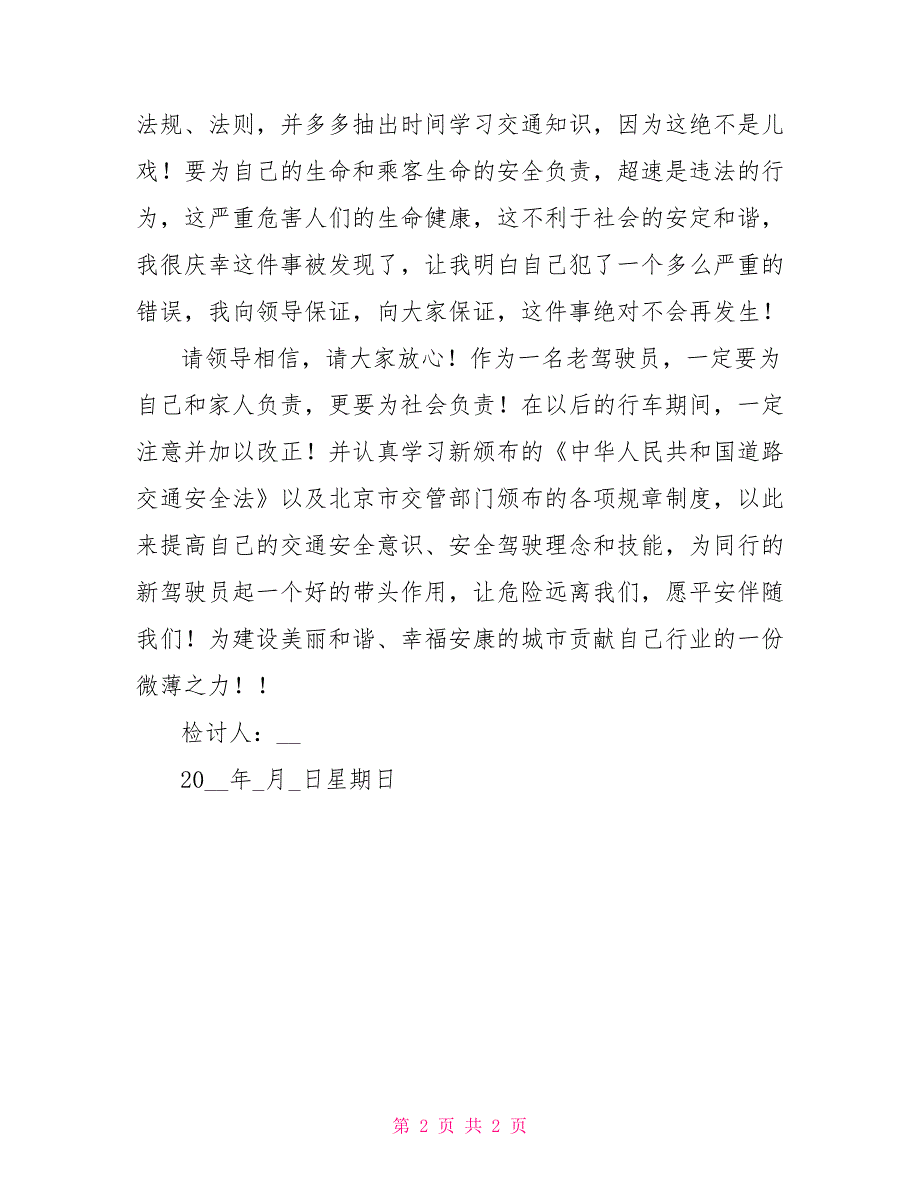 法规、法则，并多多抽出时间学习交通知识，因为这绝不是儿
戏！要为自己的生命和乘客生命的安全负责，超速是违法的行
为，这严重危害人们的生命健康，这不利于社会的安定和谐，
我很庆幸这件事被发现了，让我明白自己犯了一个多么严重的
错误，我向领导保证，向大家保证，这件事绝对不会再发生！
请领导相信，请大家放心！作为一名老驾驶员，一定要为
自己和家人负责，更要为社会负责！在以后的行车期间，一定
注意并加以改正！并认真学习新颁布的《中华人民共和国道路
交通安全法》以及北京市交管部门颁布的各项规章制度，以此
来提高自己的交通安全意识、安全驾驶理念和技能，为同行的
新驾驶员起一个好的带头作用，让危险远离我们，愿平安伴随
我们！为建设美丽和谐、幸福安康的城市贡献自己行业的一份
微薄之力！！
检讨人：__
20__年_月_日星期日
第 2 页 共 2 页